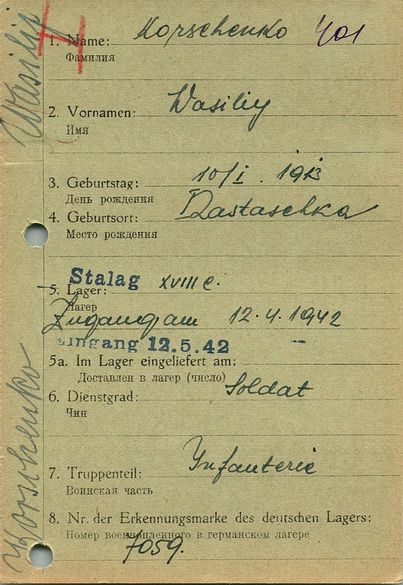 Wasilij
Korschenko
1. Name: Korschenko 401
Фамилия
2. Vornamen: Wasiliy
Имя
3. Geburtstag: 10/I. 1913
День рождения
4. Geburtsort: Rastaschka
Место рождения
5. Lager: Stalag XVIII C.
Лагер
Zugang am 12.4.1942
Eingang 12.5.42
5a. Im Lager eingeliefert am:
Доставлен в лагер (число)
6. Dienstgrad: Soldat
Чин
7. Truppenteil: Infanterie
Воинская часть
8. Nr. der Erkennungsmarke des deutschen Lagers:
Номер военнопленного в германском лагере
7059.